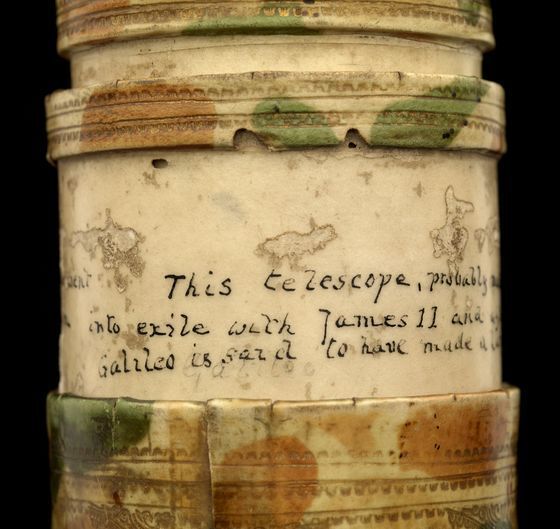 This telescope, probably
into exile with James II and
Galileo is said to have made a